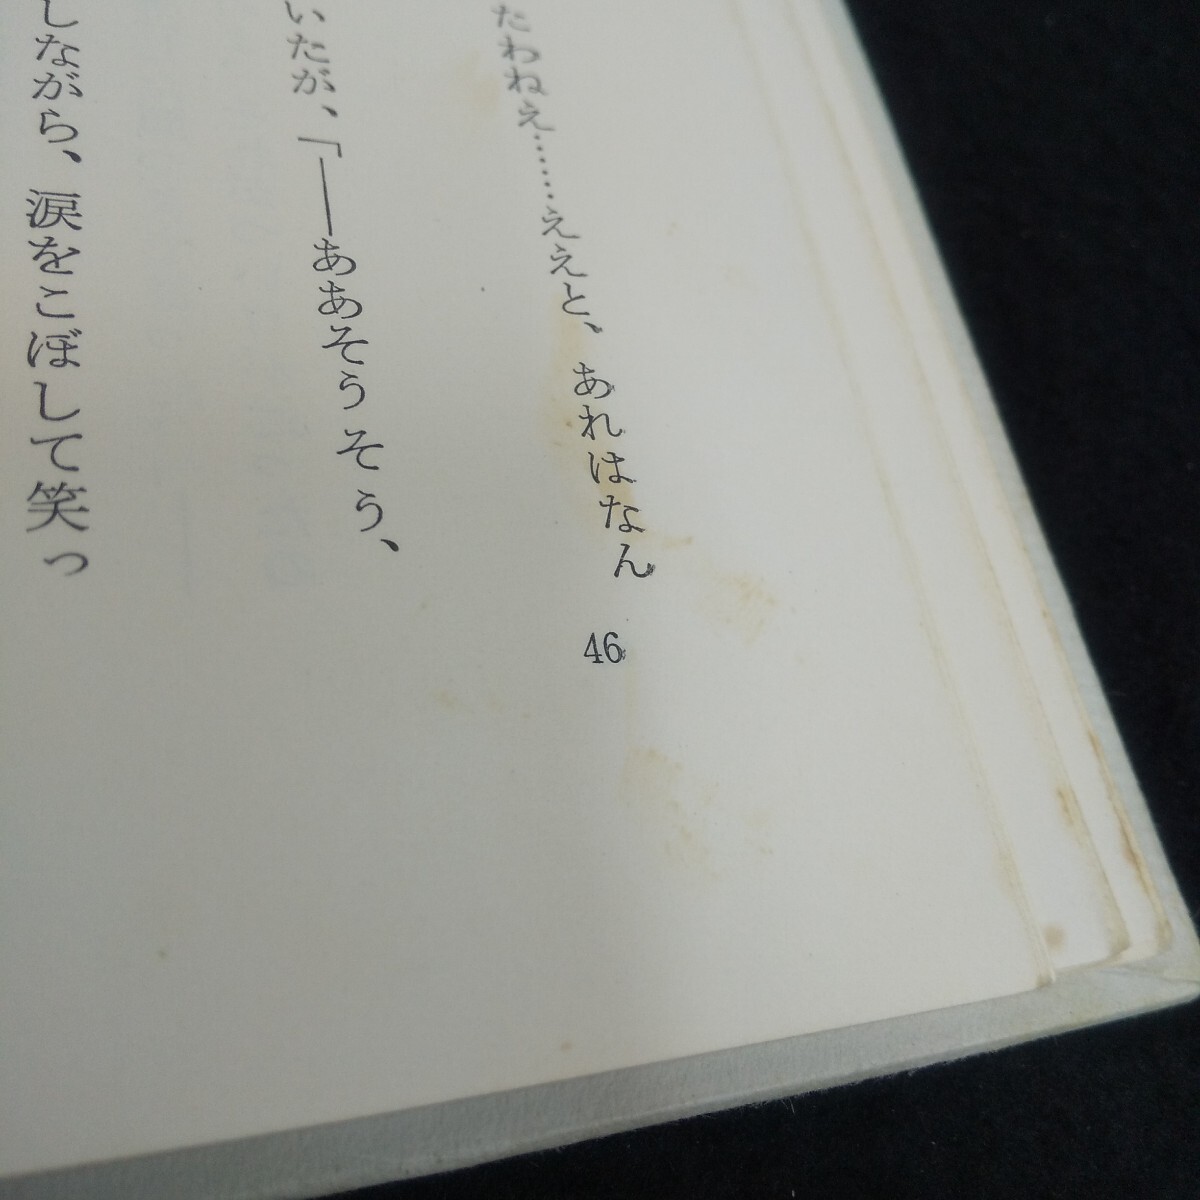 たわねえ……ええと、あれはなん
いたが、「——ああそうそう、
しながら、涙をこぼして笑っ
46